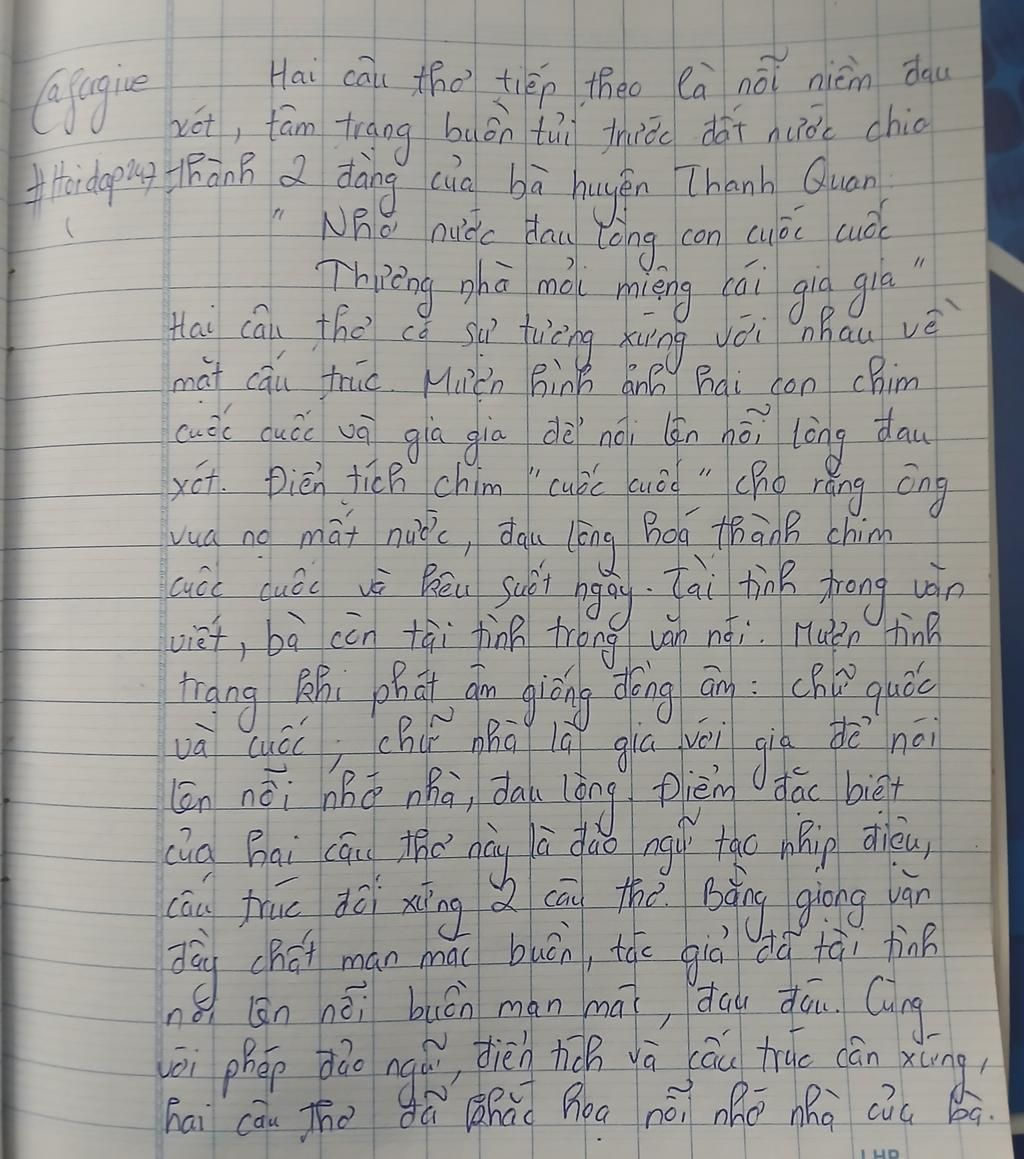 Cafagive
#Hoidap247
Hai câu thơ tiếp theo là nỗi niềm đau
xót, tâm trạng buồn tủi trước đất nước chia
thành 2 đàng của bà huyện Thanh Quan:
" Nhớ nước đau lòng con cuốc cuốc
Thương nhà mỏi miệng cái gia gia"
Hai câu thơ có sự tương xứng với nhau về
mặt cấu trúc. Mượn hình ảnh hai con chim
cuốc cuốc và gia gia để nói lên nỗi lòng đau
xót. Điển tích chim "cuốc cuốc" cho rằng ông
vua nọ mất nước, đau lòng hoá thành chim
cuốc cuốc và kêu suốt ngày. Tài tình trong văn
viết, bà còn tài tình trong văn nói. Mượn tình
trạng khi phát âm giống đồng âm: chữ quốc
và cuốc, chữ nhà là gia với gia để nói
lên nỗi nhớ nhà, đau lòng. Điểm đặc biệt
của hai câu thơ này là đảo ngữ tạo nhịp điệu,
cấu trúc đối xứng 2 câu thơ. Bằng giọng văn
đầy chất man mác buồn, tác giả đã tài tình
nói lên nỗi buồn man mát, đau đáu. Cùng
với phép đảo ngữ, điển tích và cấu trúc cân xứng,
hai câu thơ đã khắc hoạ nỗi nhớ nhà của bà.